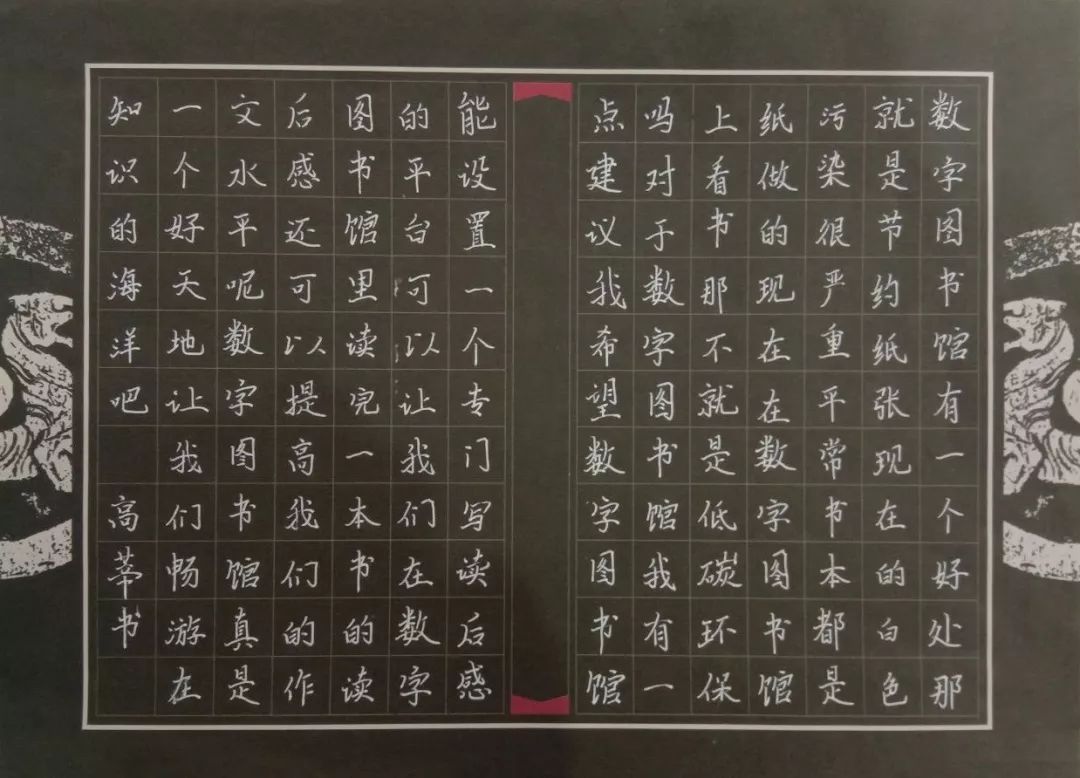 数字图书馆有一个好处那
就是节约纸张现在的白色
污染很严重平常书本都是
纸做的现在在数字图书馆
上看书那不就是低碳环保
吗对于数字图书馆我有一
点建议我希望数字图书馆
能设置一个专门写读后感
的平台可以让我们在数字
图书馆里读完一本书的读
后感还可以提高我们的作
文水平呢数字图书馆真是
一个好天地让我们畅游在
知识的海洋吧 高莘书